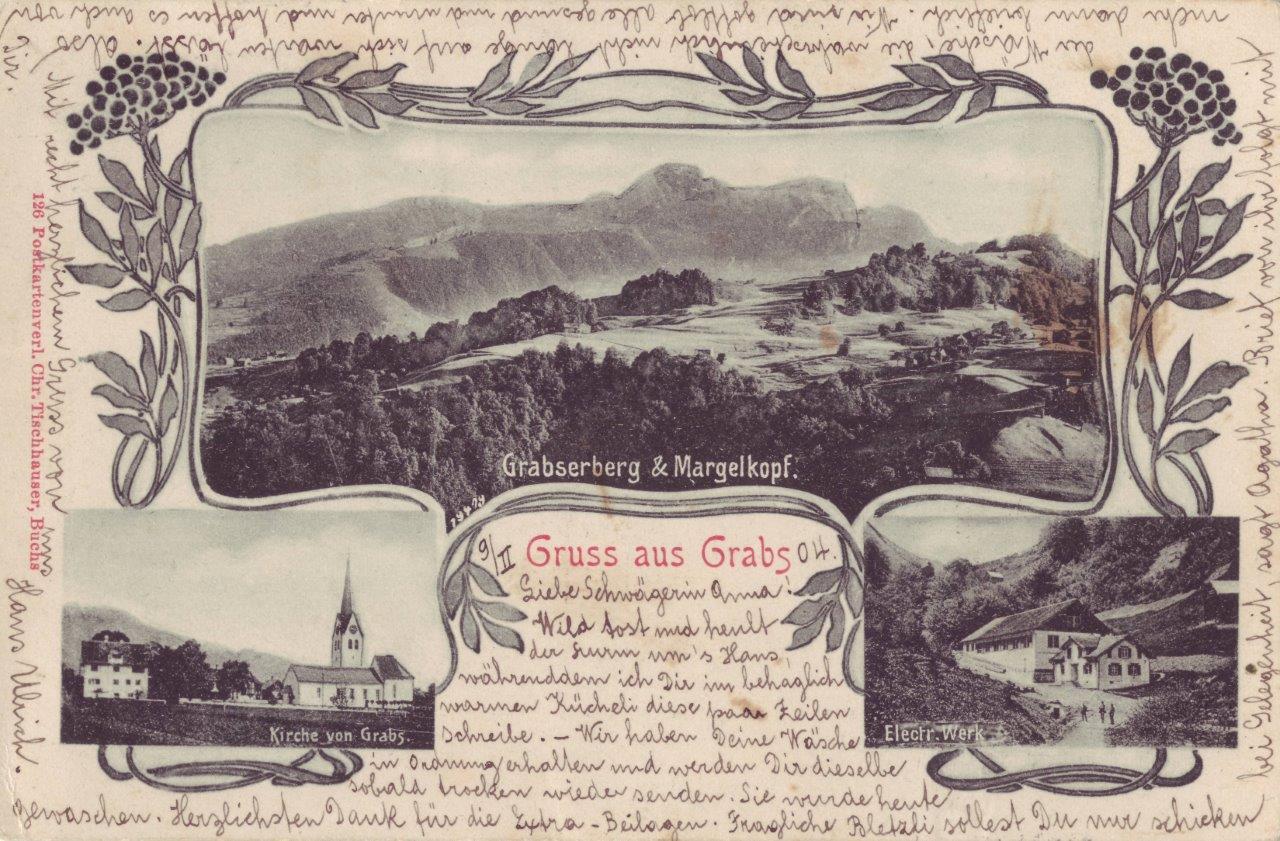 Grabserberg & Margelkopf.
Gruss aus Grabs
9/II 04.
Liebe Schwägerin Anna!
Wild tost und heult
der Sturm um's Haus,
währenddem ich Dir im behaglich
warmen Kücheli diese paar Zeilen
schreibe. - Wir haben Deine Wäsche
in Ordnung erhalten und werden Dir dieselbe
sobald trocken wieder senden. Sie wurde heute
gewaschen. Herzlichsten Dank für die Extra-Beilagen. Fragliche Bletzli sollest Du nur schicken
bei Gelegenheit, sagt Agatha. Brief von ihr folgt mit
der Wäsche, die wahrscheinlich nicht lange auf sich warten lässt. Also
mehr dann brieflich. Wir sind gottlob alle gesund und munter und hoffen es auch von
Dir.
Mit recht herzlichem Gruss von uns
Hans Ulrich.
Kirche von Grabs.
Electr. Werk
126 Postkartenverl. Chr. Tischhauser, Buchs